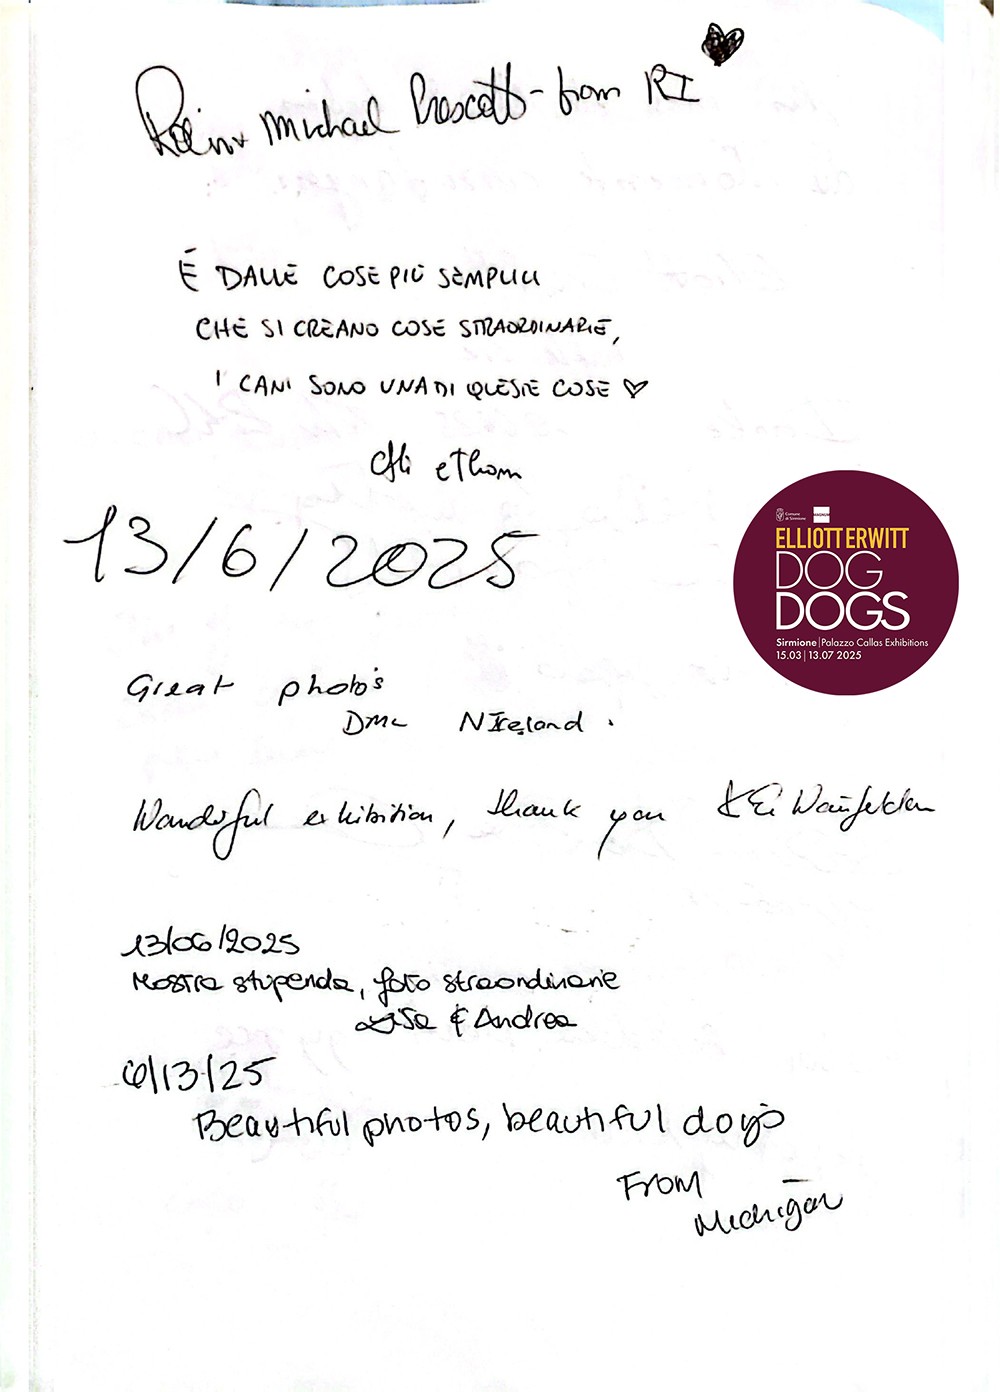 Michael Prescott - from RI
É DALLE COSE PIÙ SEMPLICI
CHE SI CREANO COSE STRAORDINARIE,
I CANI SONO UNA DI QUESTE COSE
13/6/2025
Comune
di Sirmione
MAGNUM
ELLIOTT ERWITT
DOG
DOGS
Sirmione | Palazzo Callas Exhibitions
15.03 | 13.07 2025
Great photo's
DMc NIreland.
Wonderful exhibition, thank you
13/06/2025
Mostra stupenda, foto straordinarie
Lisa & Andrea
6/13/25
Beautiful photos, beautiful dogs
From
Michigan